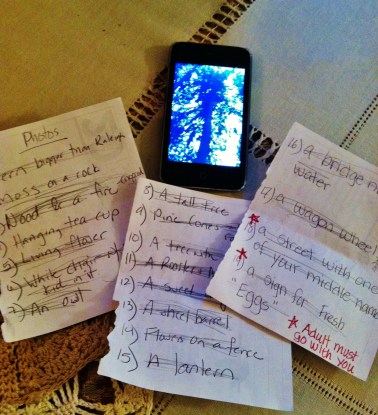 Photos
ern bigger than
moss on a rock
Wood for a fire
Hanging tea cup
flower
White chair
kid in it
7) An owl
8) A tall tree
9) Pine cones
10) A tree
11) A
12) A sweet
13) A wheel barrel
14) Flowers on a fence
15) A lantern
16) a bridge
water
a wagon wheel
a street with one
of your middle name
a sign for Fresh
"Eggs"
* Adult must
go with you